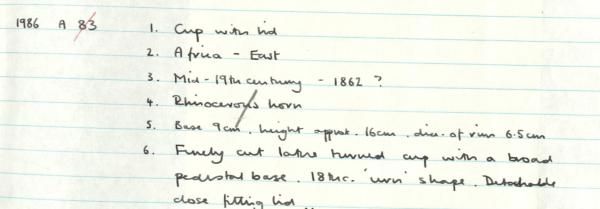 1986 A 83 1. Cup with lid
2. Africa - East
3. Mid-19th century - 1862 ?
4. Rhinocerous horn
5. Base 9cm, height approx. 16cm. dia. of rim 6.5cm
6. Finely cut lathe turned cup with a broad
pedestal base. 18thc. 'urn' shape. Detachable
close fitting lid